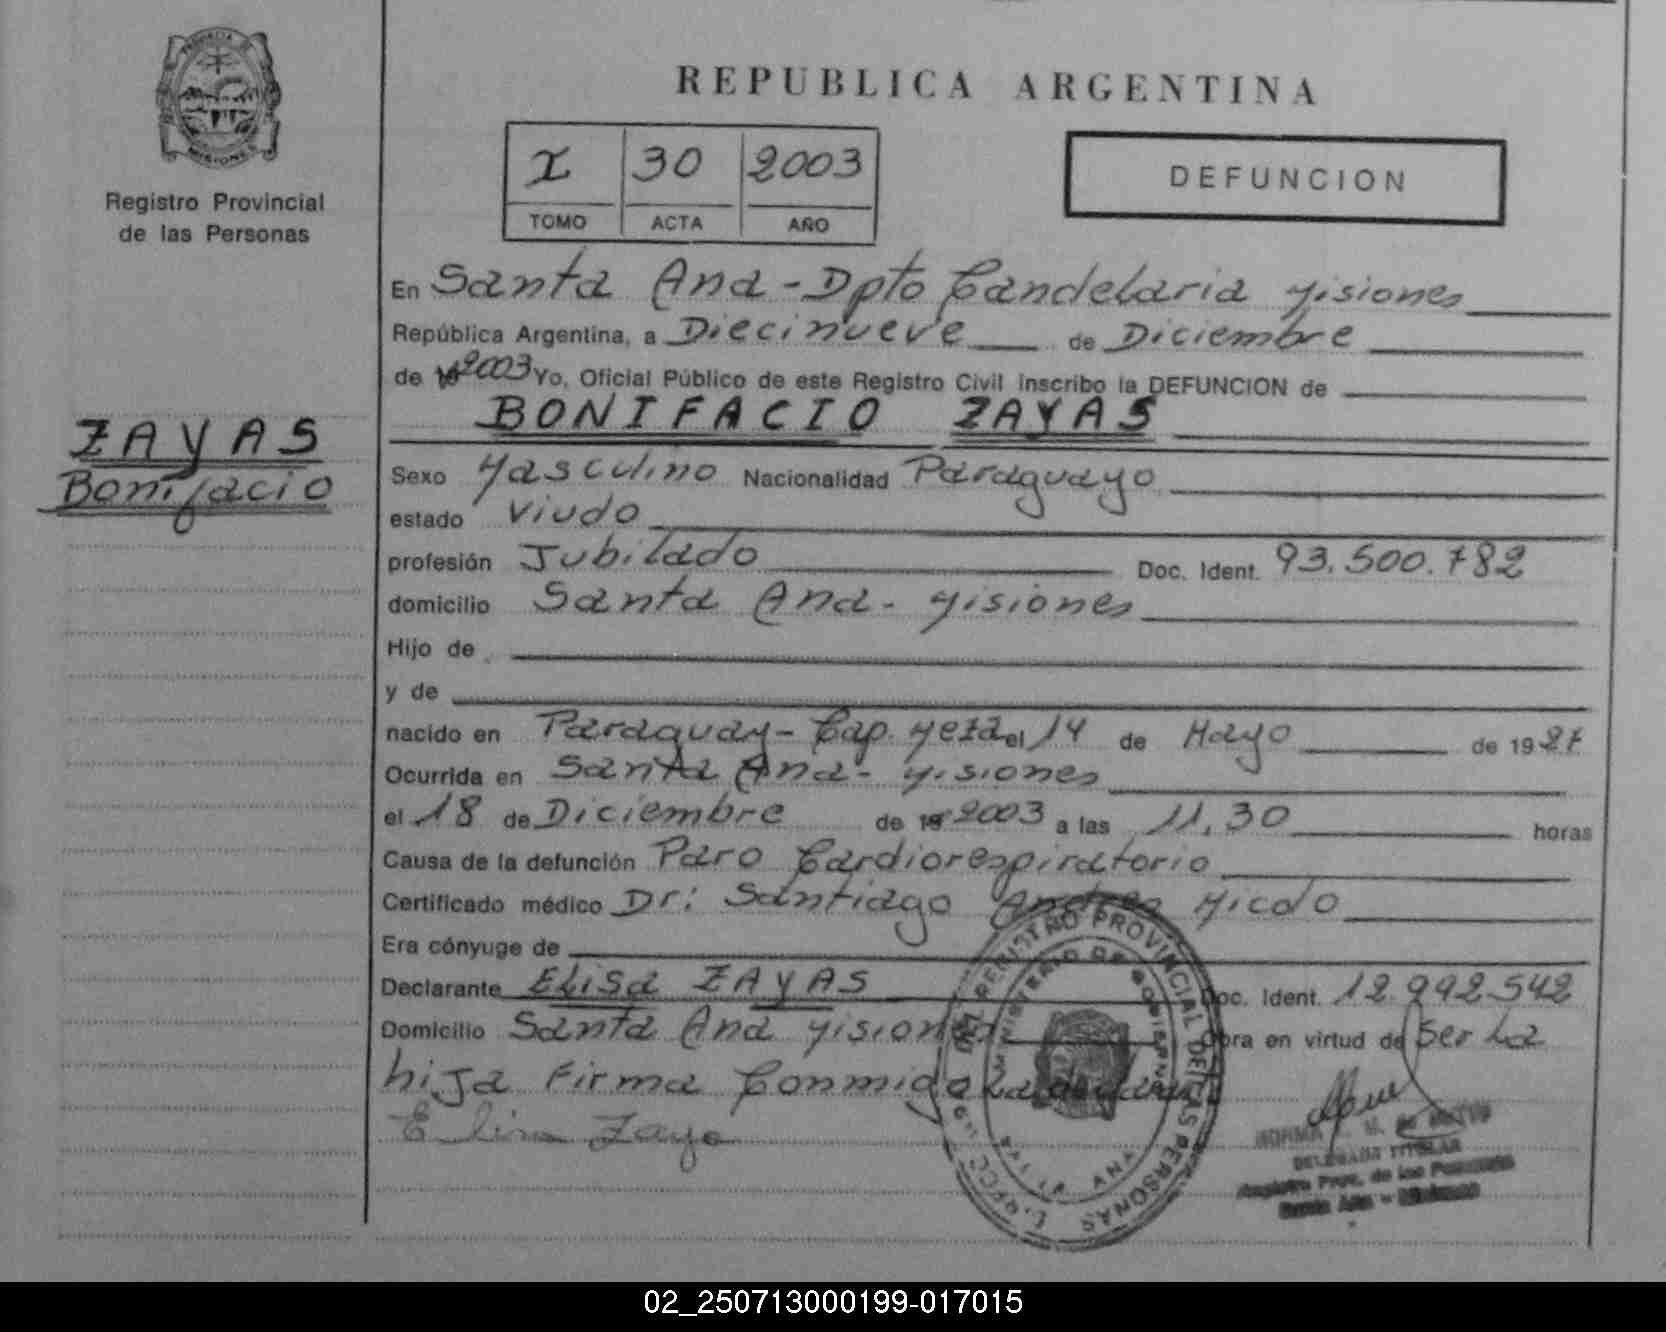 PROVINCIA DE
MISIONES
Registro Provincial
de las Personas
ZAYAS
Bonifacio
REPUBLICA ARGENTINA
I 30 2003
TOMO ACTA AÑO
DEFUNCION
En Santa Ana - Dpto Candelaria Misiones
República Argentina, a Diecinueve de Diciembre
de 2003 Yo, Oficial Público de este Registro Civil inscribo la DEFUNCION de
BONIFACIO ZAYAS
Sexo Masculino Nacionalidad Paraguayo
estado Viudo
profesión Jubilado Doc. Ident. 93.500.782
domicilio Santa Ana - Misiones
Hijo de
y de
nacido en Paraguay - Cap. Meza el 14 de Mayo de 19
Ocurrida en Santa Ana - Misiones
el 18 de Diciembre de 19 2003 a las 11,30 horas
Causa de la defunción Paro Cardiorespiratorio
Certificado médico Dr: Santiago Andres
Era cónyuge de
Declarante Elisa ZAYAS Doc. Ident. 12.992.542
Domicilio Santa Ana Misiones Obra en virtud de Ser La
hija Firma Conmigo
REGISTRO PROVINCIAL DE LAS PERSONAS
MINISTERIO DE GOBIERNO
NORMA
DELEGADA TITULAR
Registro Prov. de las Personas
Santa Ana - Misiones
02_250713000199-017015